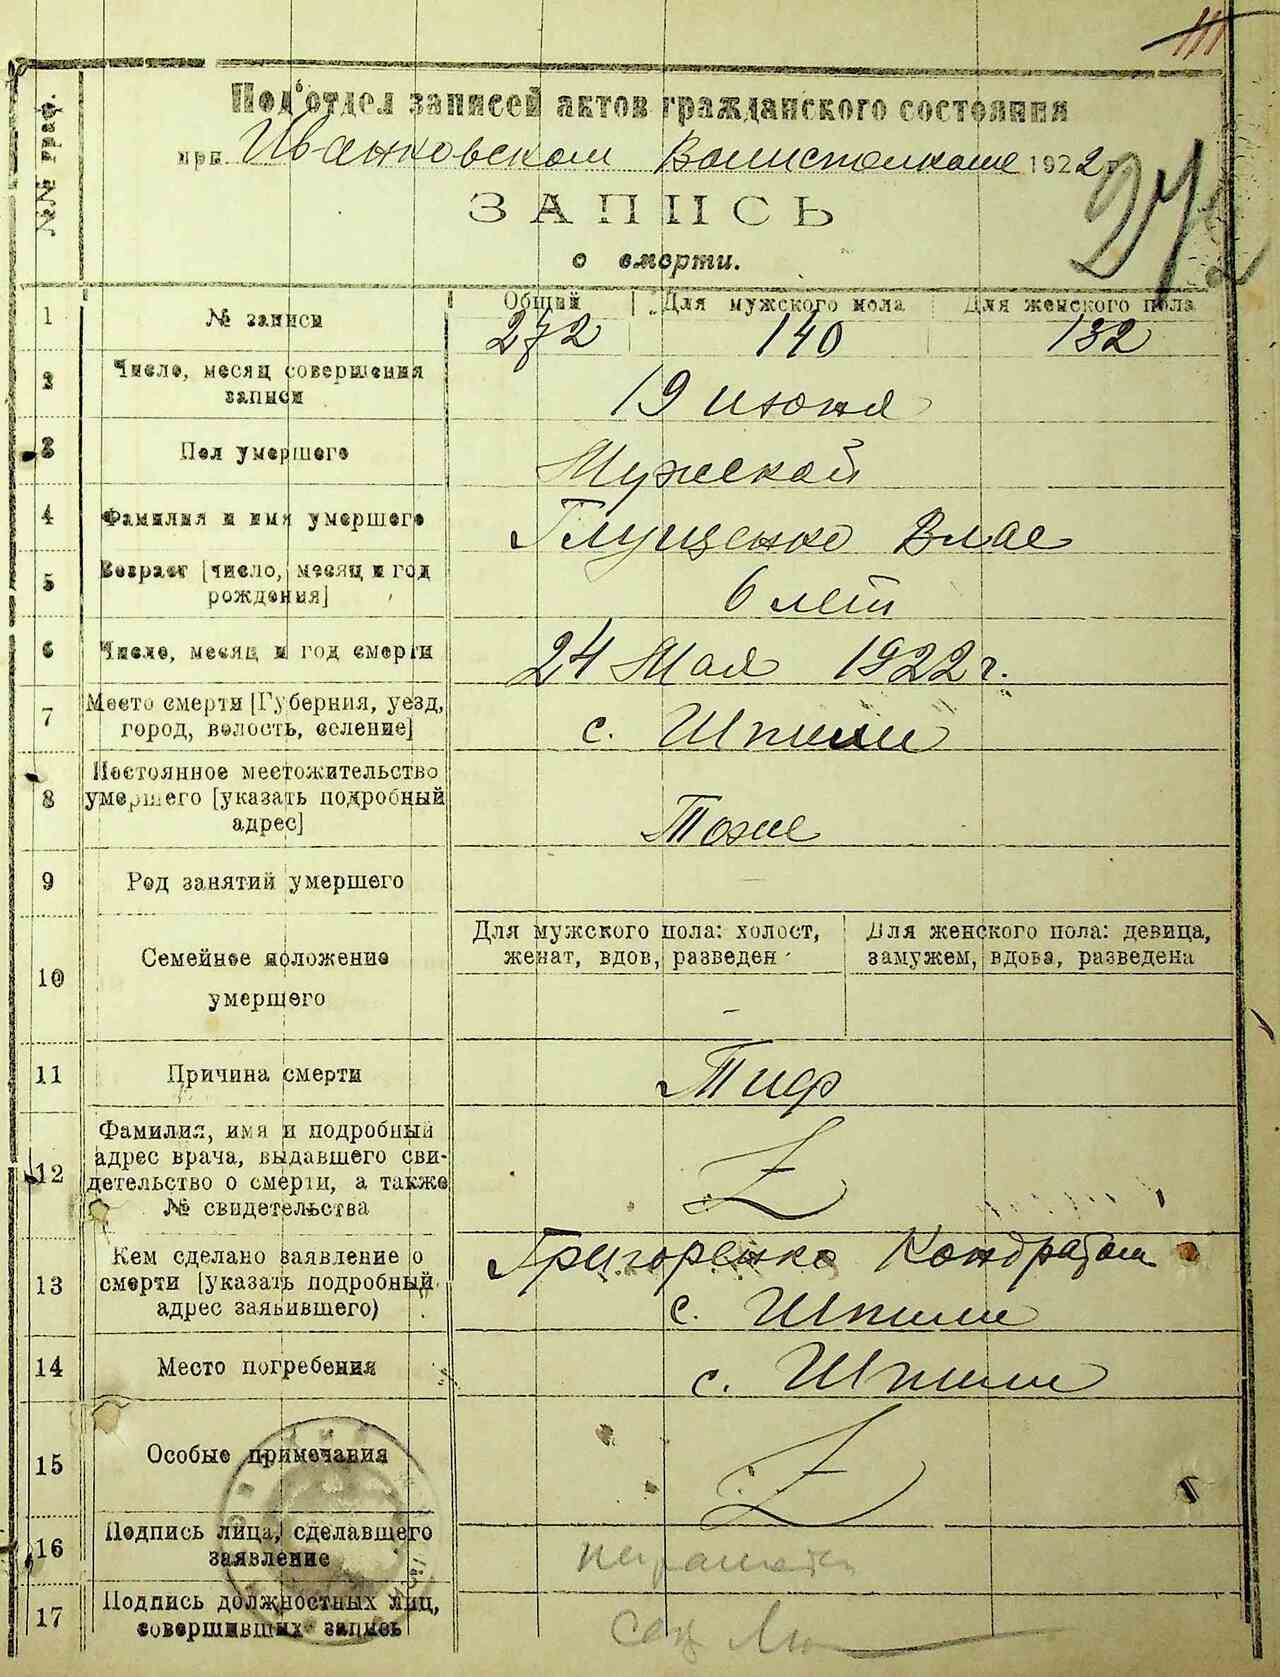 111
№№ граф.
Под'отдел записей актов гражданского состояния
при Иванковском Волисполкоме 1922 г.
272
ЗАПИСЬ
о смерти.
Общий Для мужского пола Для женского пола
1 № записи 272 140 132
2 Число, месяц совершения
записи 19 июня
3 Пол умершего Мужской
4 Фамилия и имя умершего Глущенко Влас
5 Возраст [число, месяц и год
рождения] 6 лет
6 Число, месяц и год смерти 24 Мая 1922 г.
7 Место смерти [Губерния, уезд,
город, волость, селение] с. Шпили
8 Постоянное местожительство
умершего [указать подробный
адрес] Тоже
9 Род занятий умершего
10 Семейное положение
умершего
Для мужского пола: холост,
женат, вдов, разведен
Для женского пола: девица,
замужем, вдова, разведена
11 Причина смерти Тиф
12 Фамилия, имя и подробный
адрес врача, выдавшего сви-
детельство о смерти, а также
№ свидетельства
13 Кем сделано заявление о
смерти [указать подробный
адрес заявившего)
Григоренко Кондратом
с. Шпили
14 Место погребения с. Шпили
15 Особые примечания
16 Подпись лица, сделавшего
заявление
17 Подпись должностных лиц,
совершивших запись